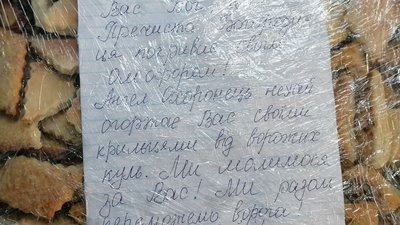 Вас Бог
Пречиста Богороди-
ця покриває Своїм
омофором!
Ангел Охоронець нехай
огортає Вас своїми
крильцями від ворожих
куль. Ми молимося
за Вас! Ми разом
переможемо ворога